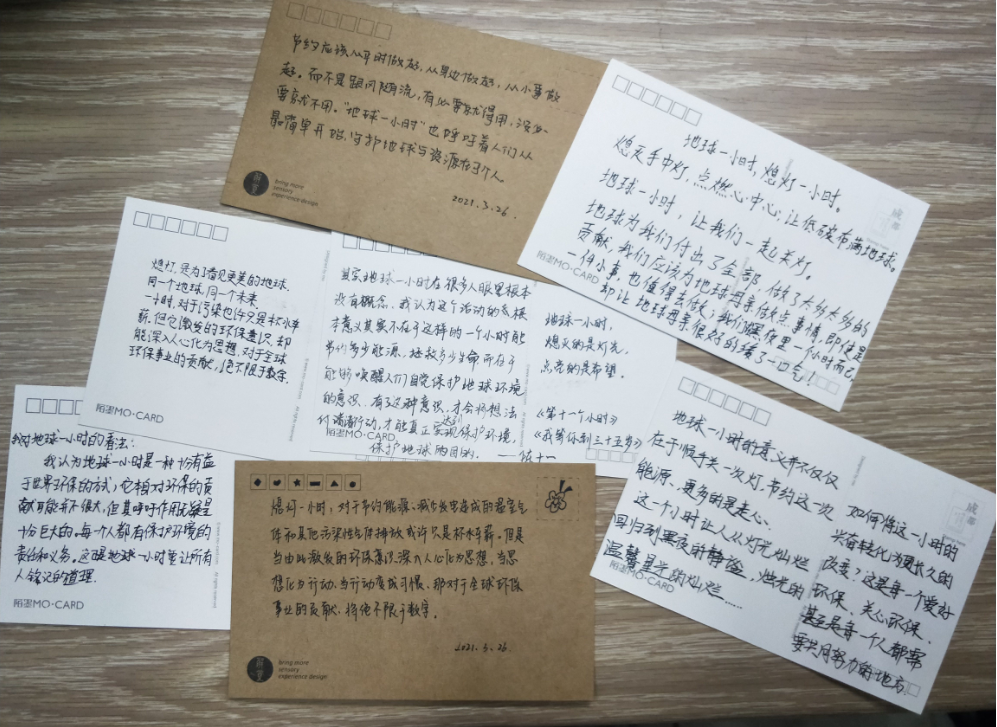 节约应该从平时做起,从身边做起,从小事做
起。而不是跟风随流,有必要就得用,没必
要就不用。"地球一小时"也呼吁着人们从
最简单开始,守护地球与资源在于个人。
2021.3.26.
bring more
sensory
experience design
地球一小时,熄灯一小时。
熄灭手中灯,点燃心中心;让低碳布满地球。
地球一小时,让我们一起关灯。
地球为我们付出了全部,做了太多太多的
贡献,我们应该为地球母亲做点事情,即使是
一件小事,也值得去做;我们哪在一个小时而已
却让地球母亲很好的缓了一口气!
陌墨MO·CARD
熄灯,是为了看见更美的地球。
同一个地球,同一个未来。
一小时,对于污染也许只是杯水车
薪,但它激发的环保意识,却
能深入人心化为思想,对于全球
环保事业的贡献,绝不限于数字。
陌墨MO·CARD
其实地球一小时在很多人眼里根本
没有概念。我认为这个活动的
本意其实不在于这样的一个小时能
节约多少能源,拯救多少生命而在于
能够唤醒人们自觉保护地球环境
的意识。有了这种意识,才会将想法
付诸行动,才能真正达到实现保护环境,
保护地球的目的。
陌墨MO·CARD
地球一小时,
熄灭的是灯光,
点亮的是希望。
《第十一个小时》
《我等你到三十五岁》
我对地球一小时的看法:
我认为地球一小时是一种十分有益
于世界环保的方式,它相对环保的贡
献可能并不很大,但其呼吁作用无疑是
十分巨大的。每个人都有保护环境的
责任和义务,这是地球一小时要让所有
人铭记的道理。
陌墨MO·CARD
熄灯一小时,对于节约能源、减少发电造成的温室气
体和其他污染性气体排放或许只是杯水车薪。但是
当由此激发的环保意识深入人心化为思想,当思
想化为行动,当行动变成习惯,那对于全球环保
事业的贡献,将绝不限于数字。
2021.3.26.
bring more
sensory
experience design
地球一小时的意义并不仅仅
在于顺手关一次灯,节约这一次
能源、更多的是走心、
这一个小时让人从灯光灿烂
回归到黑夜的静谧,烛光的
温馨星光的灿烂......
如何将这一小时的
兴奋转化为更长久的
改变?这是每一个爱好
环保、关心环保、
甚至是每一个人都需
要共同努力的地方。
成都
成都